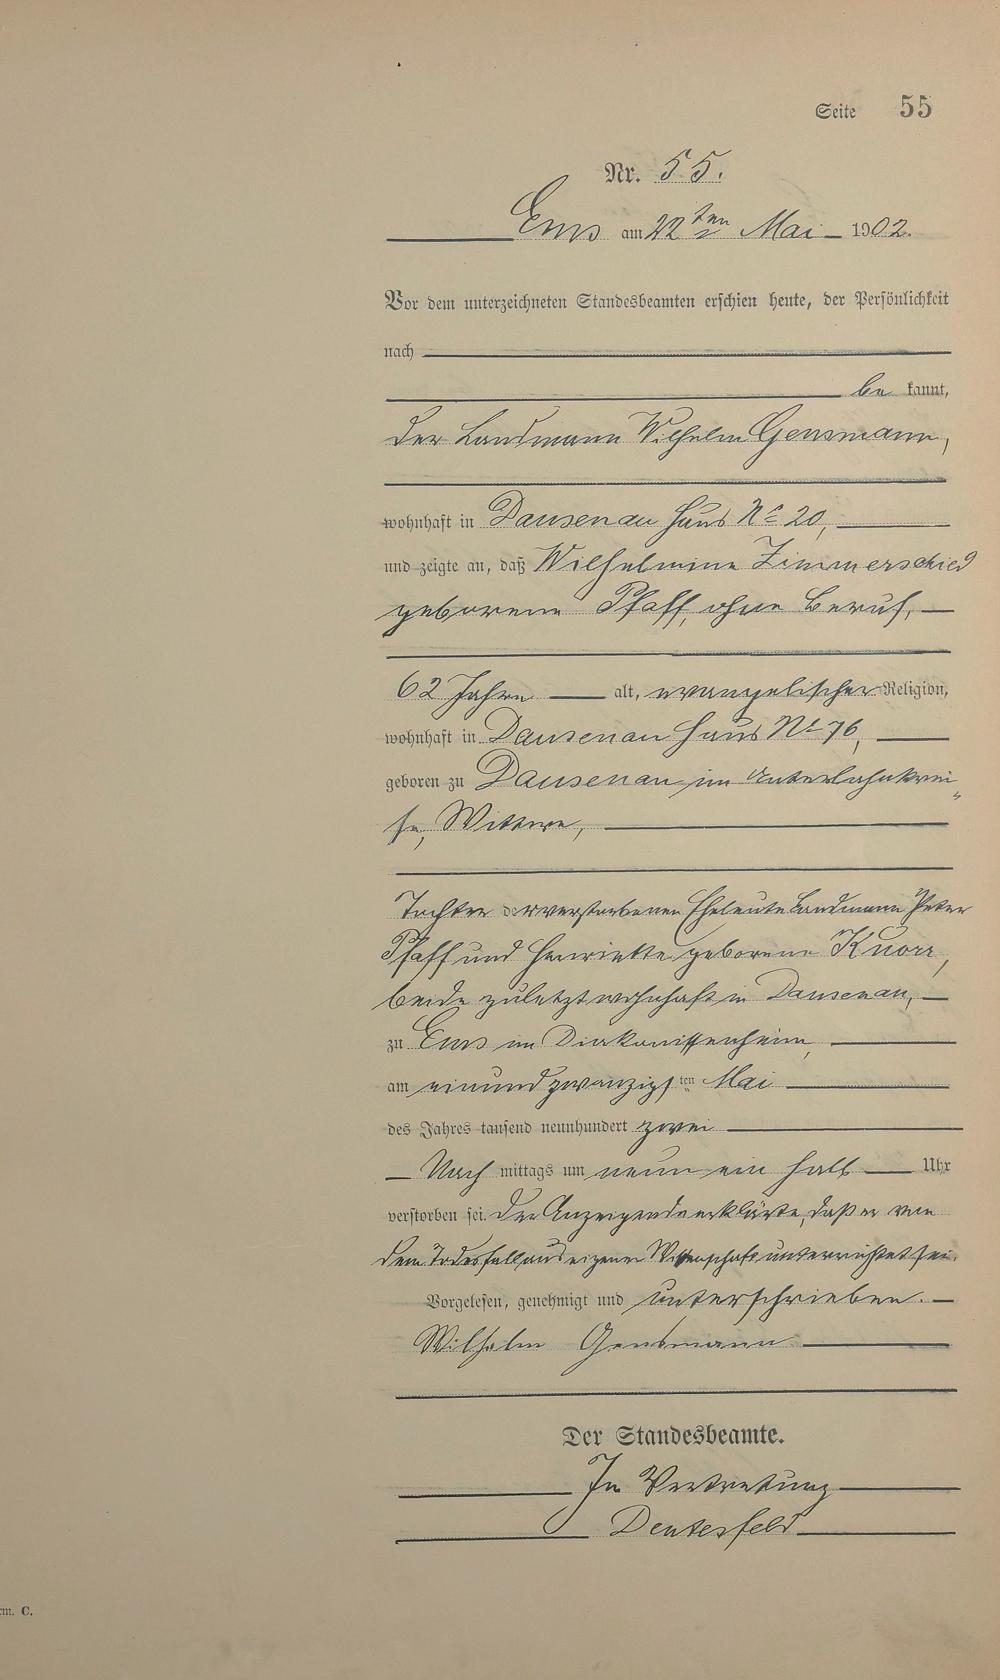 Seite 55
Nr. 55.
Ems am 22ten Mai 1902.
Vor dem unterzeichneten Standesbeamten erschien heute, der Persönlichkeit
nach
be kannt,
der Landmann Wilhelm Gensmann,
wohnhaft in Dausenau Haus No 20,
und zeigte an, daß Wilhelmine Zimmerschied
geborene Pfaff, ohne Beruf,
62 Jahre alt, evangelischer Religion,
wohnhaft in Dausenau Haus No 76,
geboren zu Dausenau im Unterlahnkrei-
se, Wittwe,
Tochter der verstorbenen Eheleute Landmann Peter
Pfaff und Henriette geborene Knorr,
beide zuletzt wohnhaft in Dausenau,
zu Ems im Diakonissenheim,
am einundzwanzigsten Mai
des Jahres tausend neunhundert zwei
Nach mittags um neun ein halb Uhr
verstorben sei. Der Anzeigende erklärte, daß er von
dem Todesfall aus eigener Wissenschaft unterrichtet sei.
Vorgelesen, genehmigt und unterschrieben.
Wilhelm Gensmann
Der Standesbeamte.
In Vertretung
rm. C.